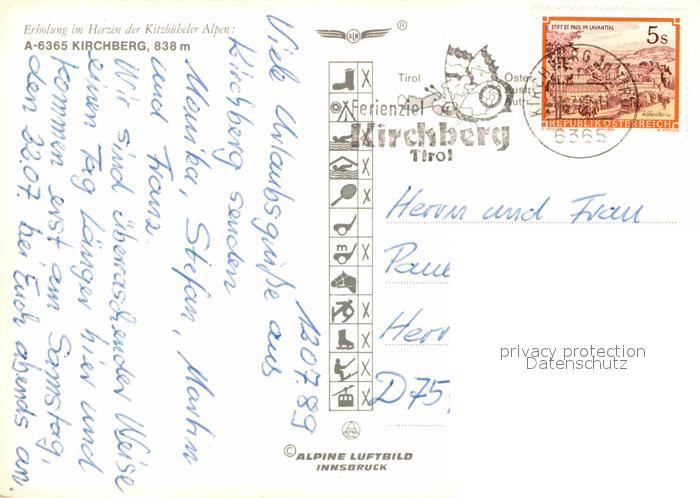 Erholung im Herzen der Kitzbüheler Alpen:
A-6365 KIRCHBERG, 838 m
®
12.07.89
Viele Urlaubsgrüße aus
Kirchberg senden
Monika, Stefan, Martin
und Franz.
Wir sind überraschender Weise
einen Tag länger hier und
kommen erst am Samstag,
den 22.07. bei Euch abends an
Tirol
Ferienziel
Kirchberg
Tirol
6365
STIFT ST. PAUL IM LAVANTTAL
5 S
REPUBLIK ÖSTERREICH
Herrn und Frau
Paul
Herr
D 75
privacy protection
Datenschutz
© ALPINE LUFTBILD
INNSBRUCK